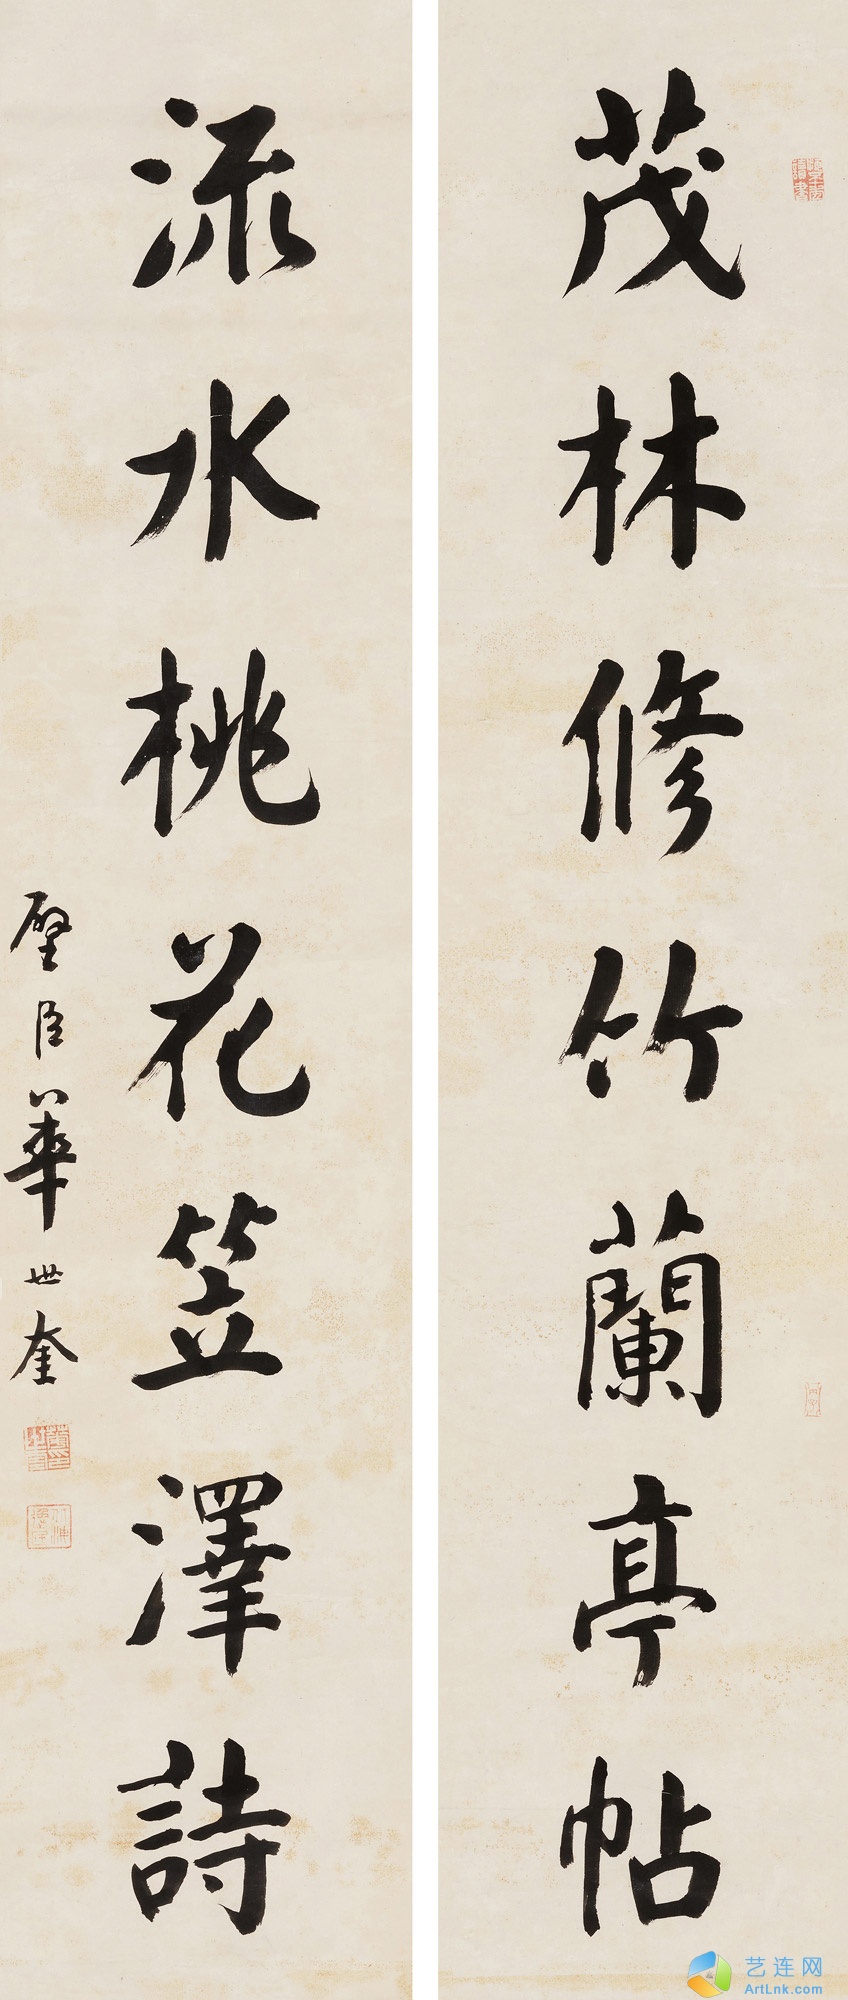 茂林修竹蘭亭帖
流水桃花笠澤詩
壁臣華世奎
艺连网
ArtLnk.com